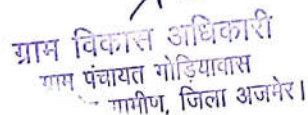 ग्राम विकास अधिकारी
ग्राम पंचायत गोड़ियावास
ग्रामीण, जिला अजमेर।